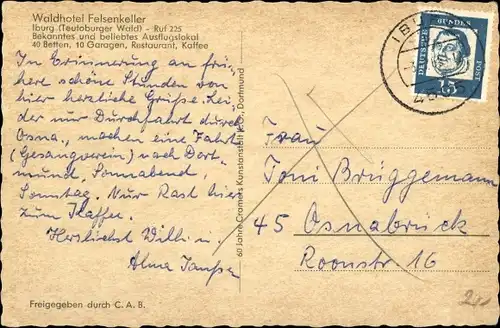 Waldhotel Felsenkeller
Iburg (Teutoburger Wald) - Ruf 225
Bekanntes und beliebtes Ausflugslokal
40 Betten, 10 Garagen, Restaurant, Kaffee
In Erinnerung an frü-
here schöne Stunden von
hier herzliche Grüße. Lei-
der nur Durchfahrt durch
Osna., machen eine Fahrt
(Gesangverein) nach Dort-
mund, Sonnabend,
Sonntag. Nur Rast hier
zum Kaffee.
Herzlichst Willi u.
Alma
Freigegeben durch C. A. B.
60 Jahre Cramers Kunstanstalt KG., Dortmund
IBU
DEUTSCHE
BUNDES
POST
15
Frau
Toni Brüggemann
45 Osnabrück
Roonstr. 16